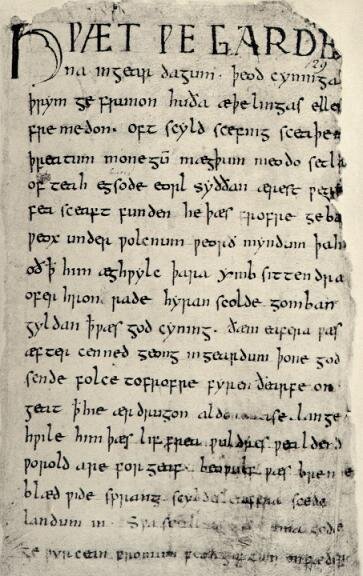 HǷÆT ǷE GARDE
na ingear dagum. þeod cyninga
þrym ge frunon huða æþelingas elle
fremedon. oft scyld scefing sceaþen
þreatum monegū mægþum meodo setla
of teah egsode eorl syððan ærest ƿear
fea sceaft funden he þæs frofre geba
ƿeox under ƿolcnum ƿeorð myndum þah
oðꝥ him æghƿylc þara ymb sittendra
ofer hron rade hyran scolde gomban
gyldan ꝥ ƿæs god cyning. ðæm eafera ƿæs
æfter cenned geong ingeardum þone god
sende folce tofrofre fyren ðearfe on
geat ꝥ hie ær drugon aldor ase. lange
hƿile him þæs lif frea ƿuldres ƿealdend
ƿorold are for geaf. beoƿulf ƿæs breme
blæd ƿide sprang scyldes eafera scede
landum in. gode
ge ƿyrcean fromum feoh giftum